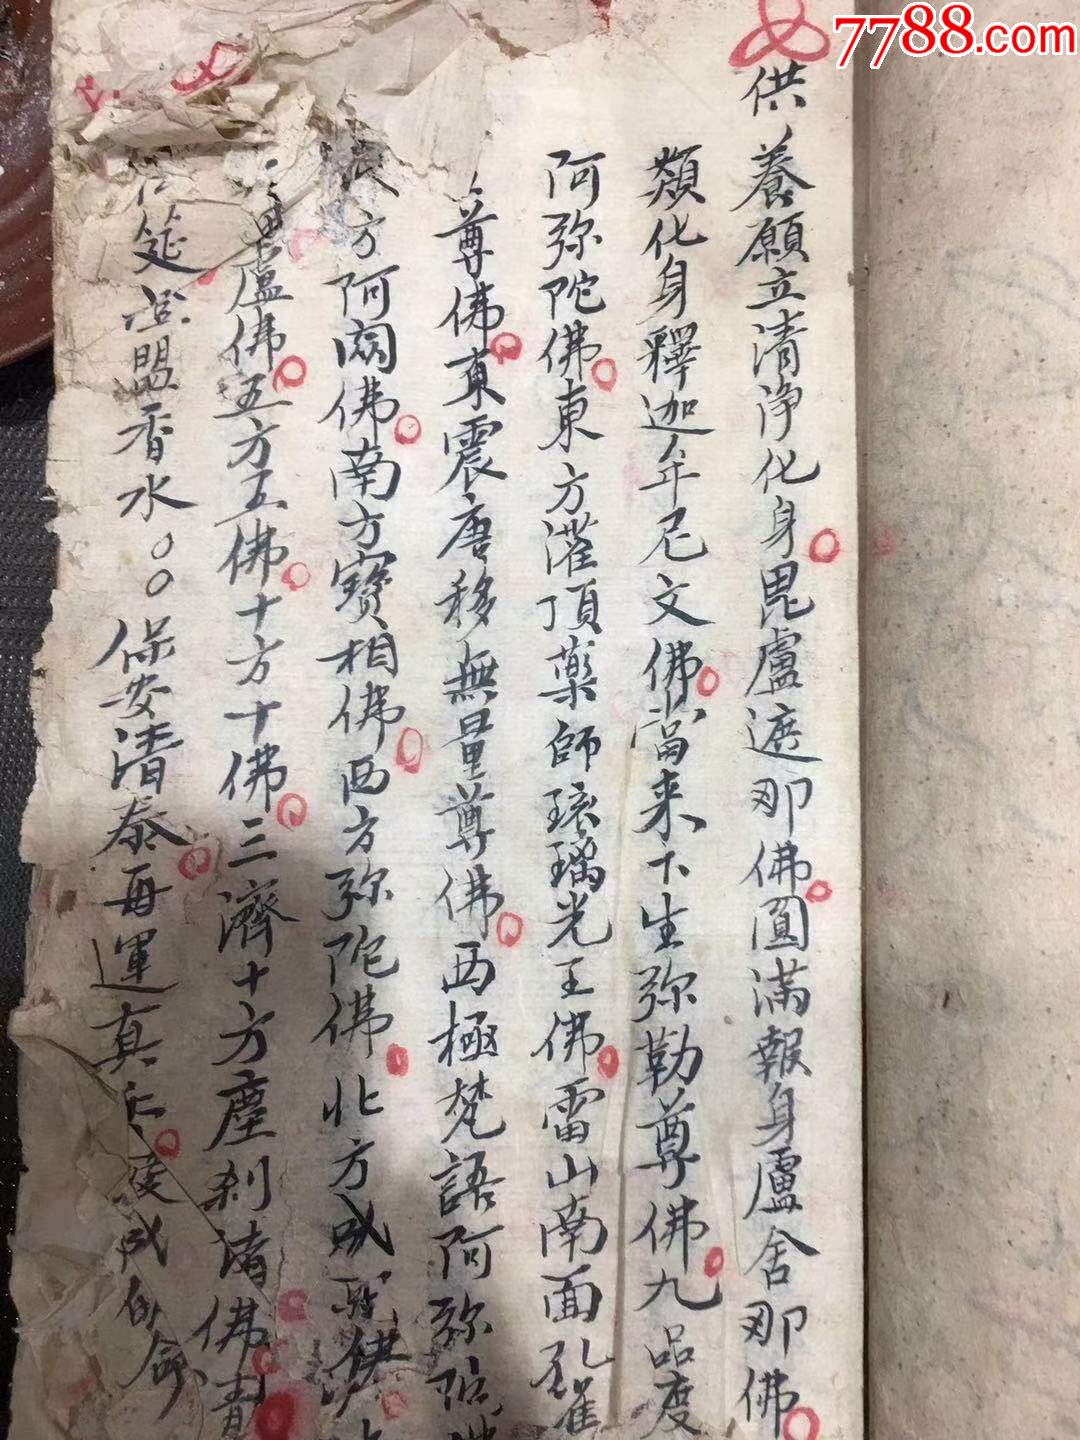 7788.com
供養願立清净化身毘盧遮那佛圓滿報身盧舍那佛
類化身釋迦牟尼文佛當来下生弥勒尊佛九品度
阿弥陀佛東方灌頂藥師琉璃光王佛雷山南面孔雀
尊佛東震唐移無量尊佛西極梵語阿弥陀
方阿閦佛南方寶相佛西方弥陀佛北方成
盧佛五方五佛十方十佛三濟十方塵刹諸佛
筵 盟香水○○保安清泰再運真 度成